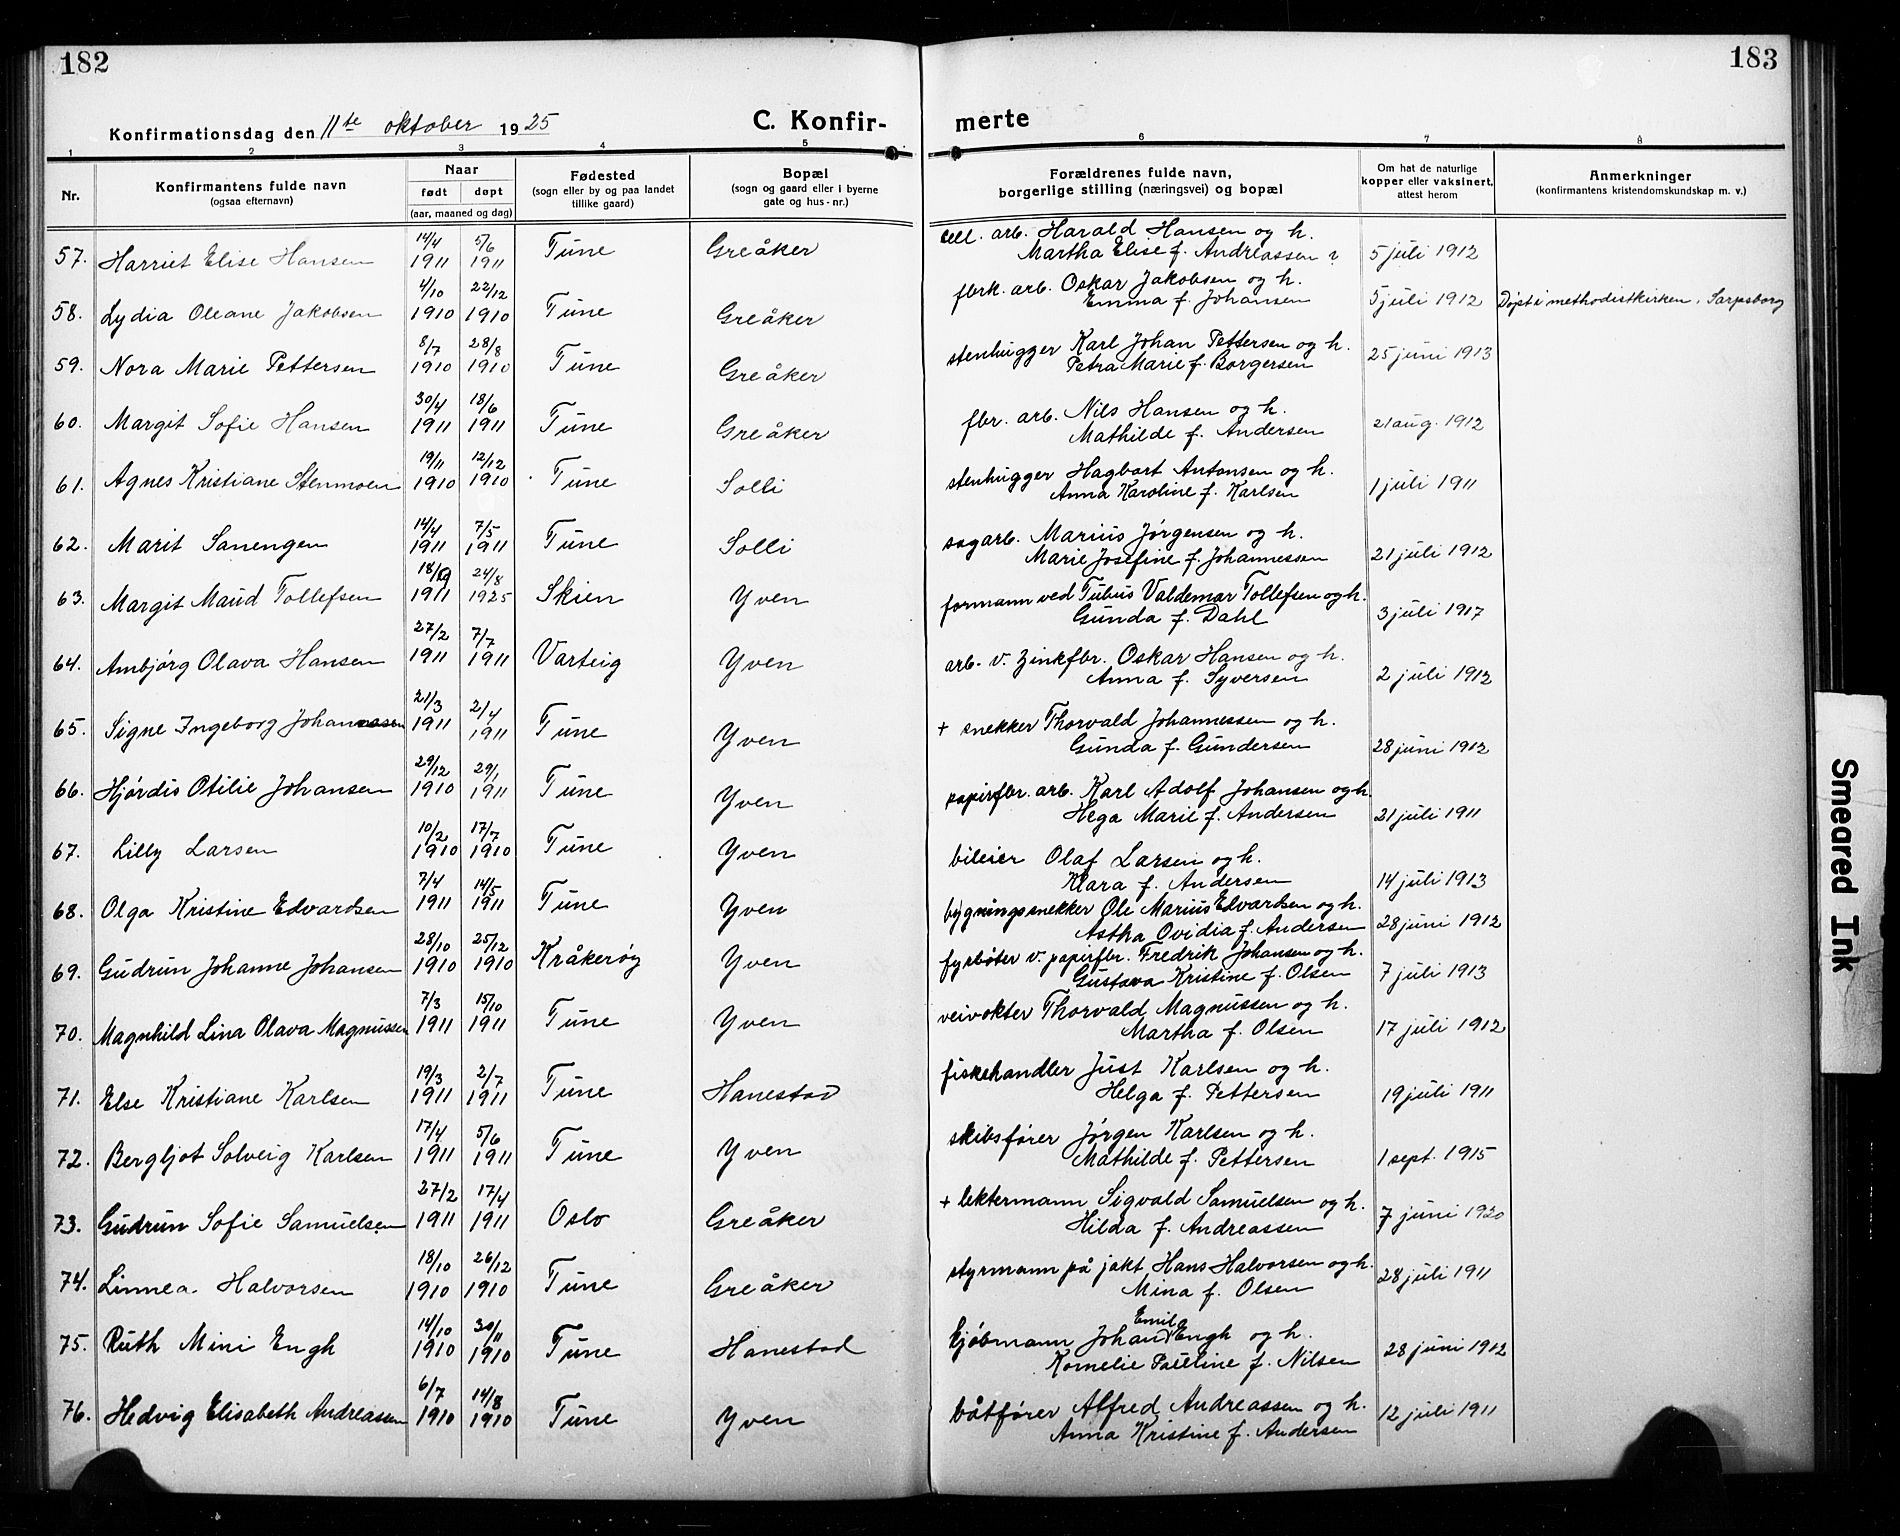 182
183
Konfirmationsdag den 11te oktober 1925
C. Konfir-
merte
1 2 3 4 5 6 7 8
Nr.
Konfirmantens fulde navn
(ogsaa efternavn)
Naar
født døpt
(aar, maaned og dag)
Fødested
(sogn eller by og paa landet
tillike gaard)
Bopæl
(sogn og gaard eller i byerne
gate og hus-nr.)
Forældrenes fulde navn,
borgerlige stilling (næringsvei) og bopæl
Om hat de naturlige
kopper eller vaksinert,
attest herom
Anmerkninger
(konfirmantens kristendomskundskap m. v.)
57. Harriet Elise Hansen 14/4 1911 5/6 1911 Tune Greåker cell. arb. Harald Hansen og h.
Martha Elise f. Andreassen 5 juli 1912
58. Lydia Oleane Jakobsen 4/10 1910 22/12 1910 Tune Greåker fbrk. arb. Oskar Jakobsen og h.
Emma f. Johansen 5 juli 1912 Døpt i methodistkirken, Sarpsborg
59. Nora Marie Pettersen 8/7 1910 28/8 1910 Tune Greåker stenhugger Karl Johan Pettersen og h.
Petra Marie f. Borgersen 25 juni 1913
60. Margit Sofie Hansen 30/4 1911 18/6 1911 Tune Greåker fbr. arb. Nils Hansen og h.
Mathilde f. Andersen 21 aug. 1912
61. Agnes Kristiane Stenmoen 19/11 1910 12/12 1910 Tune Solli stenhugger Hagbart Antonsen og h.
Anna Karoline f. Karlsen 1 juli 1911
62. Marit Sanengen 14/4 1911 7/5 1911 Tune Solli sagarb. Marius Jørgensen og h.
Marie Josefine f. Johannessen 21 juli 1912
63. Margit Maud Tollefsen 18/9 1911 24/8 1925 Skien Yven formann ved Tubus Valdemar Tollefsen og h.
Gunda f. Dahl 3 juli 1917
64. Ambjørg Olava Hansen 27/2 1911 7/7 1911 Varteig Yven arb. v. Zinkfbr. Oskar Hansen og h.
Anna f. Syversen 2 juli 1912
65. Signe Ingeborg Johannessen 21/3 1911 2/4 1911 Tune Yven + snekker Thorvald Johannessen og h.
Gunda f. Gundersen 28 juni 1912
66. Hjørdis Otilie Johansen 29/12 1910 29/1 1911 Tune Yven papirfbr. arb. Karl Adolf Johansen og h.
Hega Marie f. Andersen 21 juli 1911
67. Lilly Larsen 10/2 1910 17/7 1910 Tune Yven bileier Olaf Larsen og h.
Klara f. Andersen 14 juli 1913
68. Olga Kristine Edvardsen 7/4 1911 14/5 1911 Tune Yven bygningssnekker Ole Marius Edvardsen og h.
Astha Ovidia f. Andersen 28 juni 1912
69. Gudrun Johanne Johansen 28/10 1910 25/12 1910 Kråkerøy Yven fyrbøter v. papirfbr. Fredrik Johansen og h.
Gustava Kristine f. Olsen 7 juli 1913
70. Magnhild Lina Olava Magnussen 7/3 1911 15/10 1911 Tune Yven veivokter Thorvald Magnussen og h.
Martha f. Olsen 17 juli 1912
71. Else Kristiane Karlsen 19/3 1911 2/7 1911 Tune Hanestad fiskehandler Just Karlsen og h.
Helga f. Pettersen 19 juli 1911
72. Bergljot Solveig Karlsen 17/4 1911 5/6 1911 Tune Yven skibsfører Jørgen Karlsen og h.
Mathilde f. Pettersen 1 sept. 1915
73. Gudrun Sofie Samuelsen 27/2 1911 17/4 1911 Oslo Greåker + lektermann Sigvald Samuelsen og h.
Hilda f. Andreassen 7 juni 1920
74. Linnea Halvorsen 18/10 1910 26/12 1910 Tune Greåker styrmann på jakt Hans Halvorsen og h.
Mina f. Olsen 28 juli 1911
75. Ruth Mini Engh 14/10 1910 30/11 1910 Tune Hanestad kjøbmann Johan Emil Engh og h.
Kornelie Pauline f. Nilsen 28 juni 1912
76. Hedvig Elisabeth Andreassen 6/7 1910 14/8 1910 Tune Yven båtfører Alfred Andreassen og h.
Anna Kristine f. Andersen 12 juli 1911
Smeared Ink